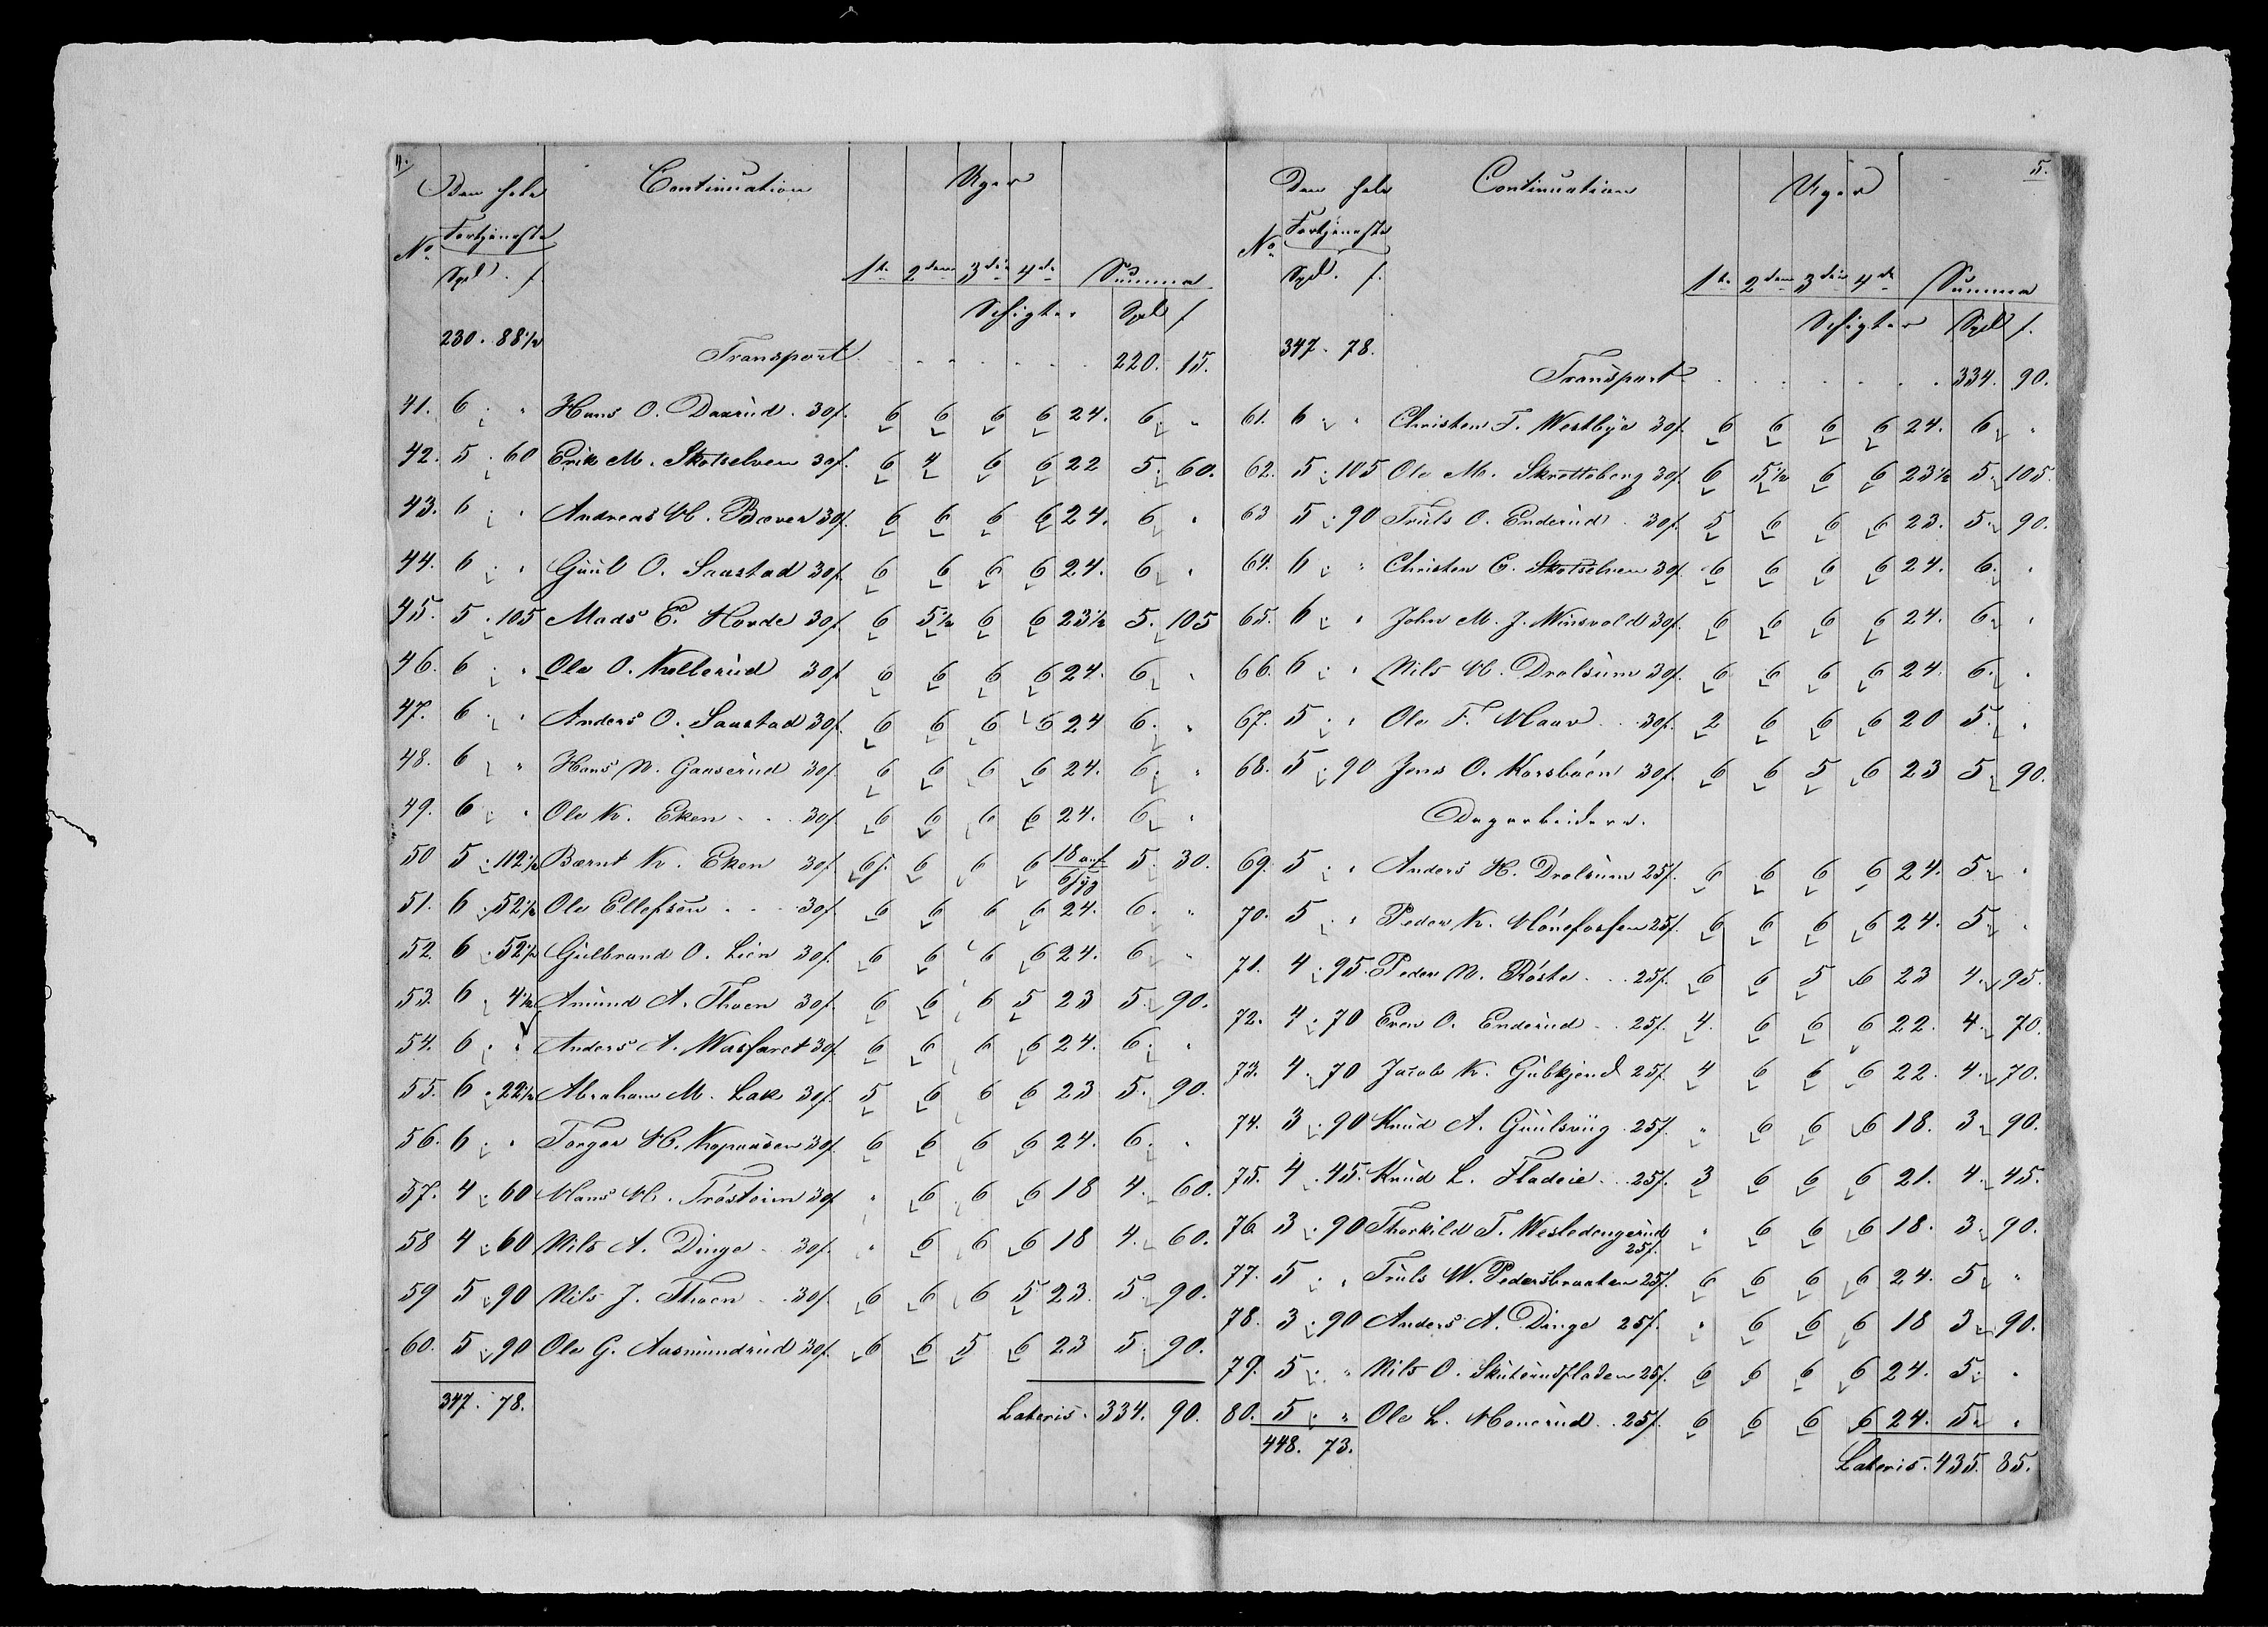 4.
Den hele Continuation Uger
No Fortjeneste
Spd. ſ. 1te 2den 3die 4de Summa
Schigter Spd ſ
230. 88½ Transport . . . . . . 220. 15.
41. 6 . " Hans O. Daarud. 30ſ. 6 6 6 6 24. 6. "
42. 5. 60 Erik M. Skotselven 30ſ. 6 4 6 6 22 5. 60.
43. 6 . " Andreas H. Bæver 30ſ. 6 6 6 6 24. 6 "
44. 6 . " Guul O. Saastad 30ſ. 6 6 6 6 24. 6 "
45. 5. 105 Mads E. Hovde 30ſ. 6 5½ 6 6 23½ 5. 105
46. 6 . " Ole O. Kolterud 30ſ 6 6 6 6 24. 6 "
47. 6 . " Anders O. Saastad 30ſ. 6 6 6 6 24 6. "
48. 6 " Hans N. Gaaserud 30ſ. 6 6 6 6 24. 6. "
49. 6 . " Ole K. Eken . . . 30ſ 6 6 6 6 24. 6 "
50 5. 112½ Bærnt K. Eken 30ſ 6 6 6 6 18 5. 30.
51. 6. 52½ Ole Ellefsen . . . 30ſ. 6 6 6 6 24. 6. "
52. 6. 52½ Gulbrand O. Lien 30ſ. 6 6 6 6 24. 6 "
53. 6. 4½ Amund A. Thoen 30ſ. 6 6 6 5 23 5. 90.
54. 6 . " Anders A. Wasfaret 30ſ. 6 6 6 6 24. 6. "
55. 6. 22½ Abraham M. Lak 30ſ. 5 6 6 6 23 5. 90.
56. 6 . " Torger H. Kopaasen 30ſ. 6 6 6 6 24. 6. "
57. 4. 60 Hans H. Trösteim 30ſ " 6 6 6 18 4. 60.
58 4. 60 Nils A. Dinge . 30ſ. " 6 6 6 18 4. 60.
59 5. 90 Nils J. Thoen . . 30ſ. 6 6 6 5 23 5. 90.
60. 5. 90 Ole G. Aasmundrud 30ſ. 6 6 5 6 23 5. 90.
347. 78. Lateris. 334. 90.
5.
Den hele Continuation Uger
No Fortjeneste
Spd. ſ. 1te 2den 3die 4de Summa
Schigter Spd ſ.
347. 78. Transport . . . . . . 334. 90.
61. 6 " Christen F. Westbye 30ſ. 6 6 6 6 24. 6 "
62. 5. 105 Ole M. Skretteberg 30ſ. 6 5½ 6 6 23½ 5. 105.
63 5. 90 Truls O. Enderud . 30ſ. 5 6 6 6 23. 5. 90.
64. 6 . " Christen E. Skotselven 30ſ. 6 6 6 6 24. 6. "
65. 6 . " John M. J. Winsvold 30ſ. 6 6 6 6 24. 6. "
66. 6 . " Nils H. Drolsum 30ſ. 6 6 6 6 24. 6. "
67. 5 . " Ole F. Moar . . 30ſ. 2 6 6 6 20 5. "
68. 5. 90 Jens O. Korsböen 30ſ. 6 6 5 6 23 5. 90.
Dagarbeidere.
69. 5 . " Anders H. Drolsum 25ſ. 6 6 6 6 24. 5. "
70. 5 . " Peder K. Hönefossen 25ſ. 6 6 6 6 24. 5. "
71. 4. 95. Peder N. Röste . . 25ſ. 6 6 5 6 23 4. 95.
72. 4. 70 Even O. Enderud . . 25ſ. 4. 6 6 6 22. 4. 70.
73. 4. 70 Jacob K. Gubkjend 25ſ. 4 6 6 6 22. 4. 70.
74. 3. 90 Knud A. Guulsviig . 25ſ. " 6 6 6 18. 3. 90.
75. 4. 45. Knud L. Fladeie . . 25ſ. 3 6 6 6 21. 4. 45.
76. 3. 90 Thorkild T. Westedengerud 25ſ. " 6 6 6 18. 3. 90.
77. 5 . " Truls W. Pedersbraaten 25ſ. 6 6 6 6 24. 5. "
78. 3. 90 Anders A. Dinge 25ſ. " 6 6 6 18 3. 90.
79. 5 . " Nils O. Skuterudfladen 25ſ. 6 6 6 6 24. 5. "
80. 5 . " Ole L. Monerud . . 25ſ. 6 6 6 6 24. 5. "
448. 73. Lateris. 435. 85.